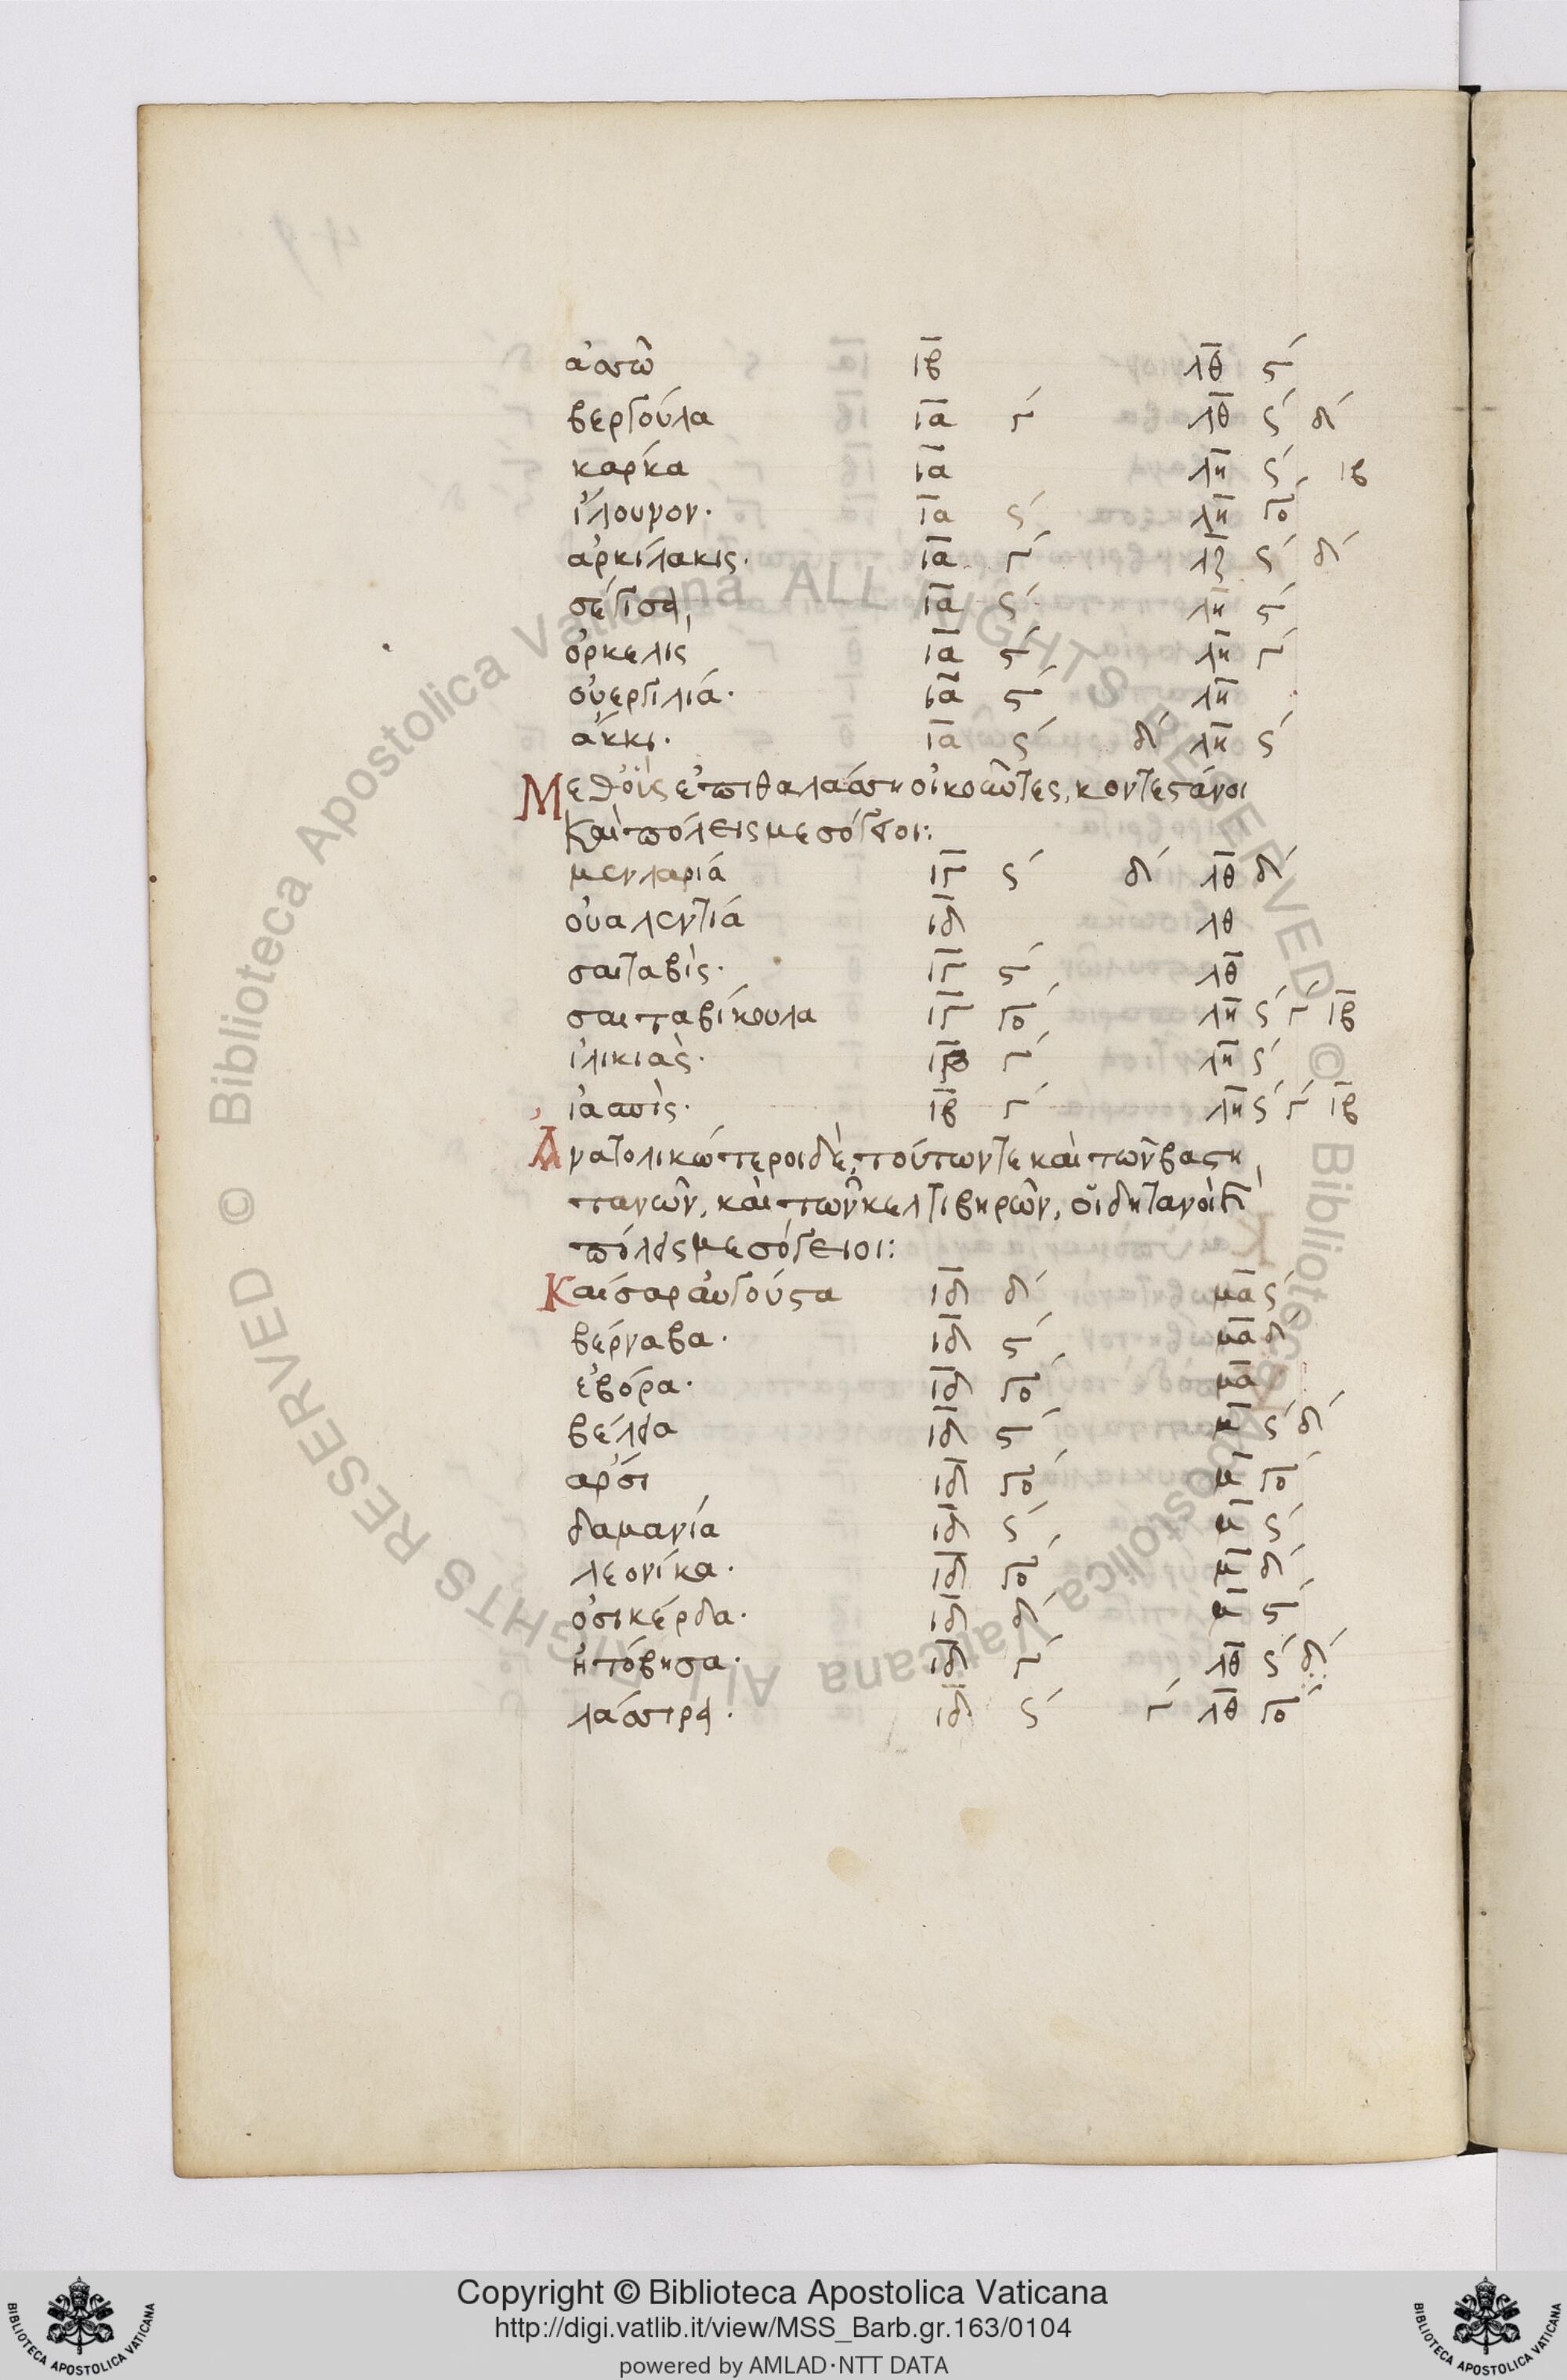 ἀσπῶ ιβ λθ ϛ
βεργούλα ια γ λθ ϛ δ
καρκα ια λη ϛ ιβ
ἴλουνον· ια ϛ λη γο
αρκίλακις· ια γ λζ ϛ δ
σέγισα ια ϛ λη ϛ
ὀρκελὶς ια ϛ λη γ
οὐεργιλιά· ια ϛ λη
ἄκκι· ια ϛ δ λη ϛ
Μεθ οἷς ἐπιθαλάσση οἰκοῶντες, κοντεστάνοι
Καὶ πόλεις μεσόγειοι:
μενλαριά ιγ ϛ δ λθ δ
οὐαλεντιά ιδ λθ
σαιταβὶς· ιγ ϛ λθ
σαιταβίκουλα ιγ γο λη ϛ γ ιβ
ἰλικιὰς· γ λη ϛ
ἰασπὶς· ιβ γ λη ϛ γ ιβ
Ἀνατολικώτεροι δὲ, τούτων τε καὶ τῶν βαστη
τανῶν, καὶ τῶν κελτιβηρῶν, οἱ δητανοὶ
πόλεις μεσόγειοι:
Καισαραυγούστα ιδ δ μα ϛ
βέρναβα· ιδ ϛ μα δ
ἐβόρα· ιδ γο μα
βέλεια ιδ ϛ μ ϛ δ
αρσι ιδ γο μ γο
δαμανία ιδ ϛ μ ϛ
λεονίκα· ιδ γο μ δ
ὀσικέρδα· ιδ δ μ ϛ
ἠτόβησα· ιδ γ λθ ϛ δ
λάσσιρα· ιδ ϛ γ λθ γο
Biblioteca Apostolica Vaticana ALL RIGHTS RESERVED ©
Biblioteca Apostolica Vaticana ALL RIGHTS RESERVED ©
Copyright © Biblioteca Apostolica Vaticana
http://digi.vatlib.it/view/MSS_Barb.gr.163/0104
powered by AMLAD·NTT DATA
BIBLIOTECA APOSTOLICA VATICANA
BIBLIOTECA APOSTOLICA VATICANA